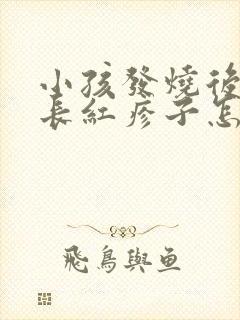 小孩發燒後
長紅疹子怎
飛鳥與魚